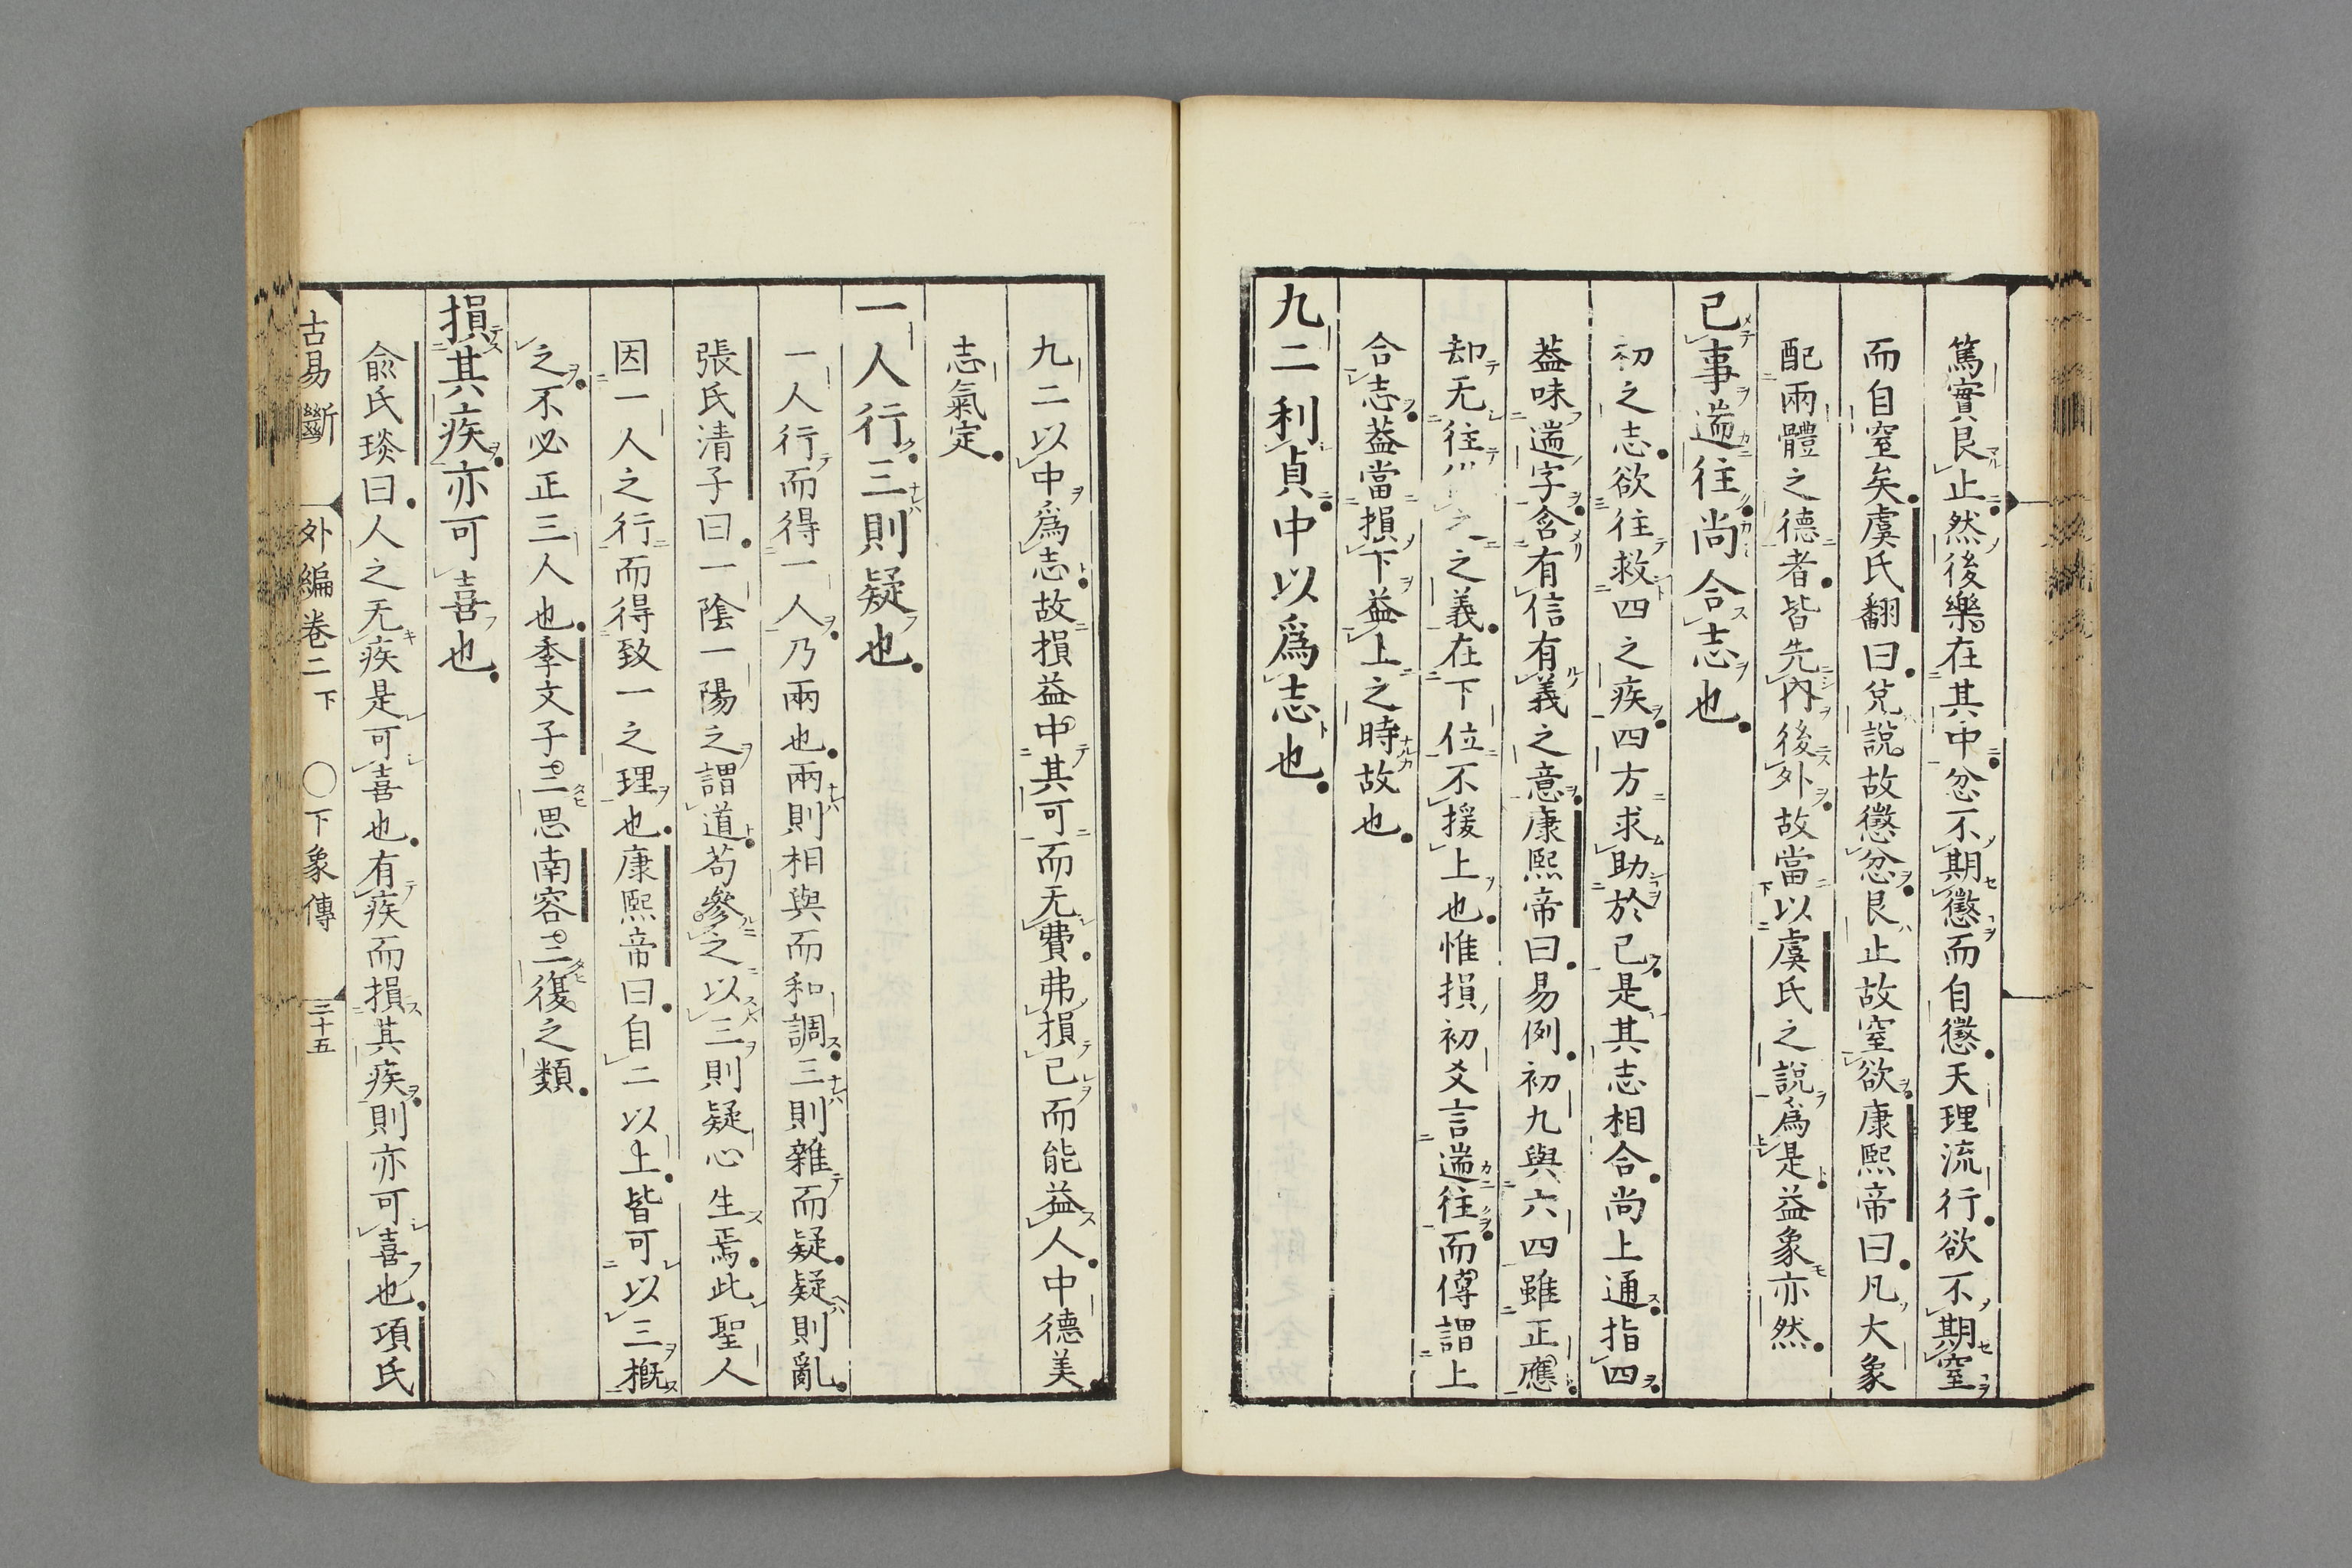 篤實艮止然後樂在其中忿不期懲而自懲天理流行欲不期窒
而自窒矣虞氏翻曰兌說故懲忿艮止故窒欲康熙帝曰凡大象
配兩體之德者皆先內後外故當以虞氏之說爲是益象亦然
已事遄往尚合志也
初之志欲往救四之疾四方求助於已是其志相合尚上通指四
葢味遄字含有信有義之意康熙帝曰易例初九與六四雖正應
却无往之義在下位不援上也惟損初爻言遄往而傳謂上
合志葢當損下益上之時故也
九二利貞中以爲志也
九二以中爲志故損益中其可而无費弗損已而能益人中德美
志氣定
一人行三則疑也
一人行而得一人乃兩也兩則相與而和調三則雜而疑疑則亂
張氏清子曰一陰一陽之謂道苟參之以三則疑心生焉此聖人
因一人之行而得致一之理也康熙帝曰自二以上皆可以三概
之不必正三人也季文子三思南容三復之類
損其疾亦可喜也
兪氏琰曰人之无疾是可喜也有疾而損其疾則亦可喜也項氏
古易斷 外編卷二下 ○下象傳 三十五